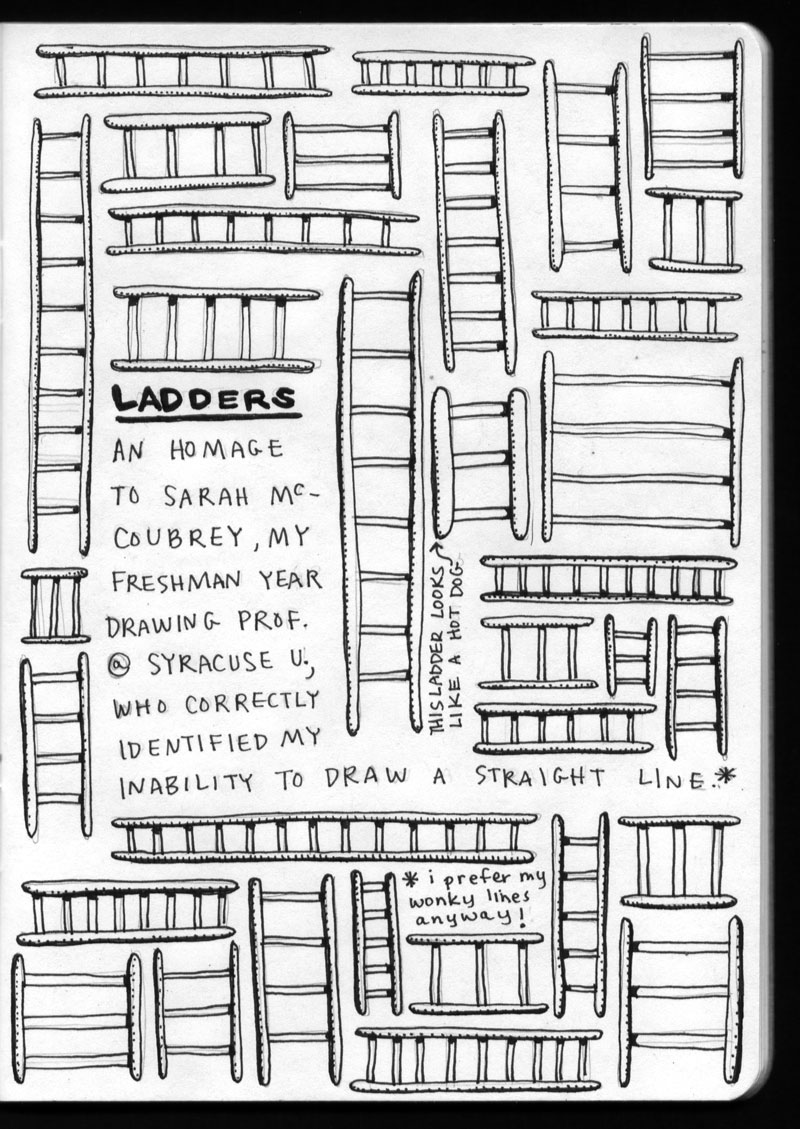 LADDERS
AN HOMAGE
TO SARAH Mc-
COUBREY, MY
FRESHMAN YEAR
DRAWING PROF.
@ SYRACUSE U.,
WHO CORRECTLY
IDENTIFIED MY
INABILITY TO DRAW A STRAIGHT LINE.*
THIS LADDER LOOKS
LIKE A HOT DOG
* i prefer my
wonky lines
anyway!